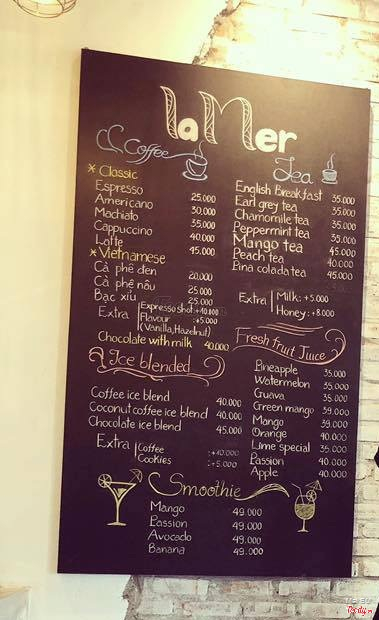 la Mer
Coffee
* Classic
Espresso 25.000
Americano 30.000
Machiato 35.000
Cappuccino 40.000
Latte 45.000
* Vietnamese
Cà phê đen 20.000
Cà phê nâu 25.000
Bạc xỉu 25.000
Extra Espresso shot: +10.000
Flavour : +5.000
(Vanilla, Hazelnut)
Chocolate with milk 40.000
Ice blended
Coffee ice blend 40.000
Coconut coffee ice blend 40.000
Chocolate ice blend 45.000
Extra Coffee : +40.000
Cookies : +5.000
Tea
English Breakfast 35.000
Earl grey tea 35.000
Chamomile tea 35.000
Peppermint tea 35.000
Mango tea 45.000
Peach tea 40.000
Pina colada tea 45.000
Extra Milk: +5.000
Honey: +8.000
Fresh fruit Juice
Pineapple 35.000
Watermelon 35.000
Guava 35.000
Green mango 39.000
Mango 39.000
Orange 40.000
Lime special 35.000
Passion 40.000
Apple 40.000
Smoothie
Mango 49.000
Passion 49.000
Avocado 49.000
Banana 49.000